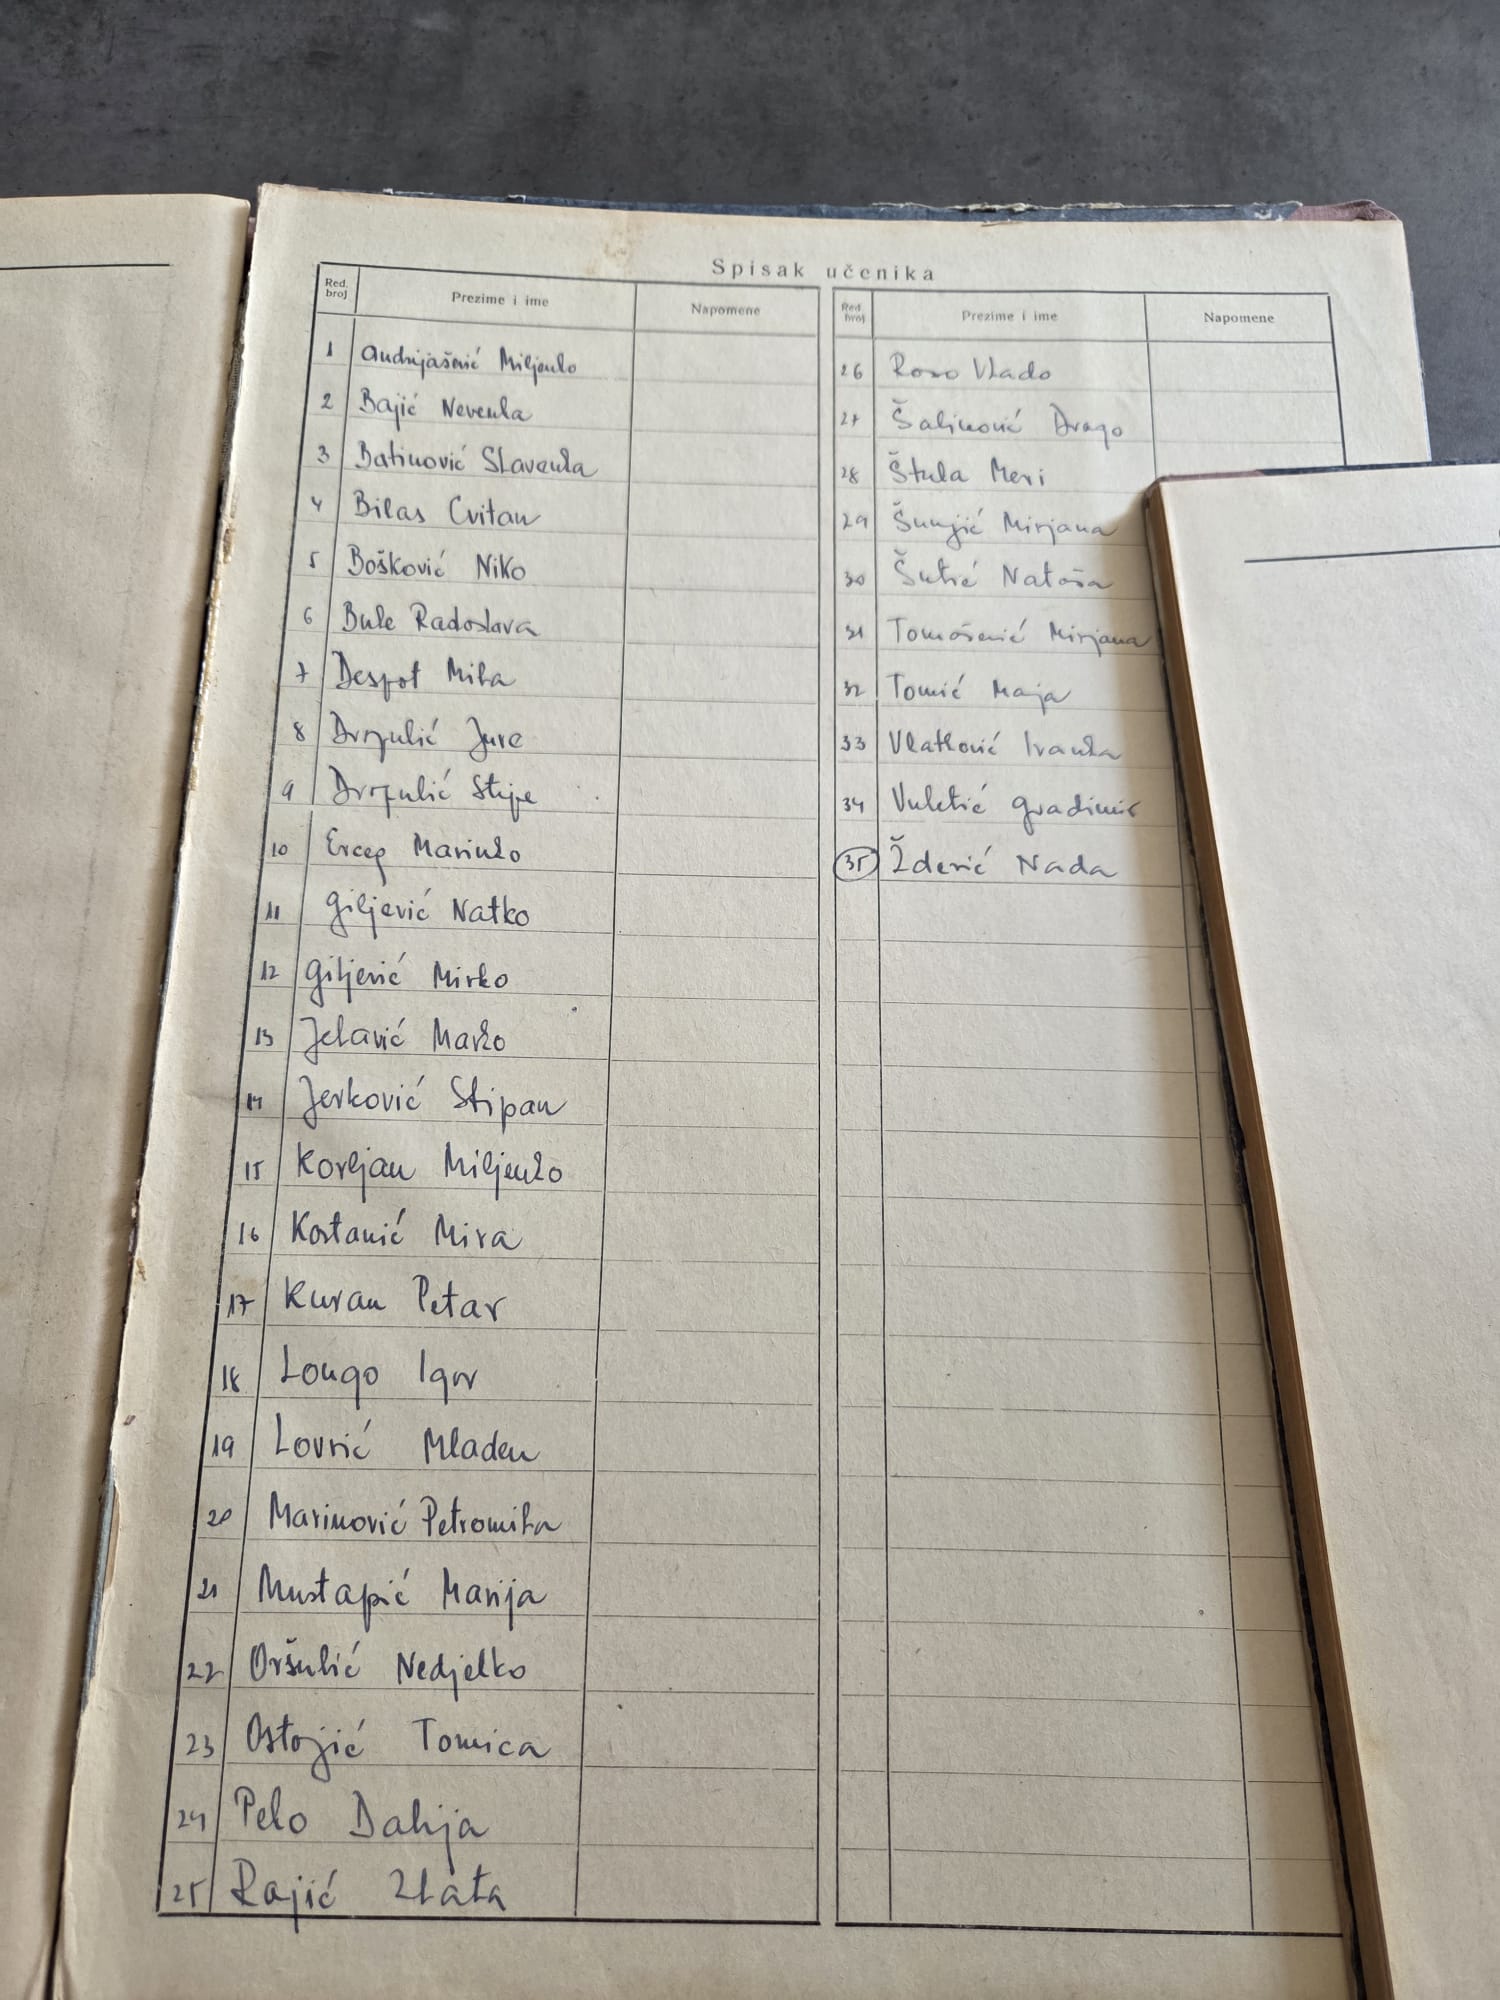 Spisak učenika
Red. broj Prezime i ime Napomene
1 Andrijašević Miljenko
2 Bajić Nevenka
3 Batinović Slavenka
4 Bilas Cvitan
5 Bošković Niko
6 Bule Radoslava
7 Despot Mila
8 Drpulić Jure
9 Drpulić Stipe
10 Erceg Marinko
11 Giljević Natko
12 Giljević Mirko
13 Jelavić Marko
14 Jerković Stipan
15 Korljan Miljenko
16 Kostanić Mira
17 Kuran Petar
18 Longo Igor
19 Lovrić Mladen
20 Marinović Petromila
21 Mustapić Marija
22 Oršulić Nedjelko
23 Ostojić Tomica
24 Pelo Dalija
25 Rajić Zlata
Red. broj Prezime i ime Napomene
26 Roso Vlado
27 Šalinović Drago
28 Štula Meri
29 Šunjić Mirjana
30 Šutić Nataša
31 Tomašević Mirjana
32 Tomić Maja
33 Vlatković Ivanka
34 Vuletić Gradimir
35 Žderić Nada